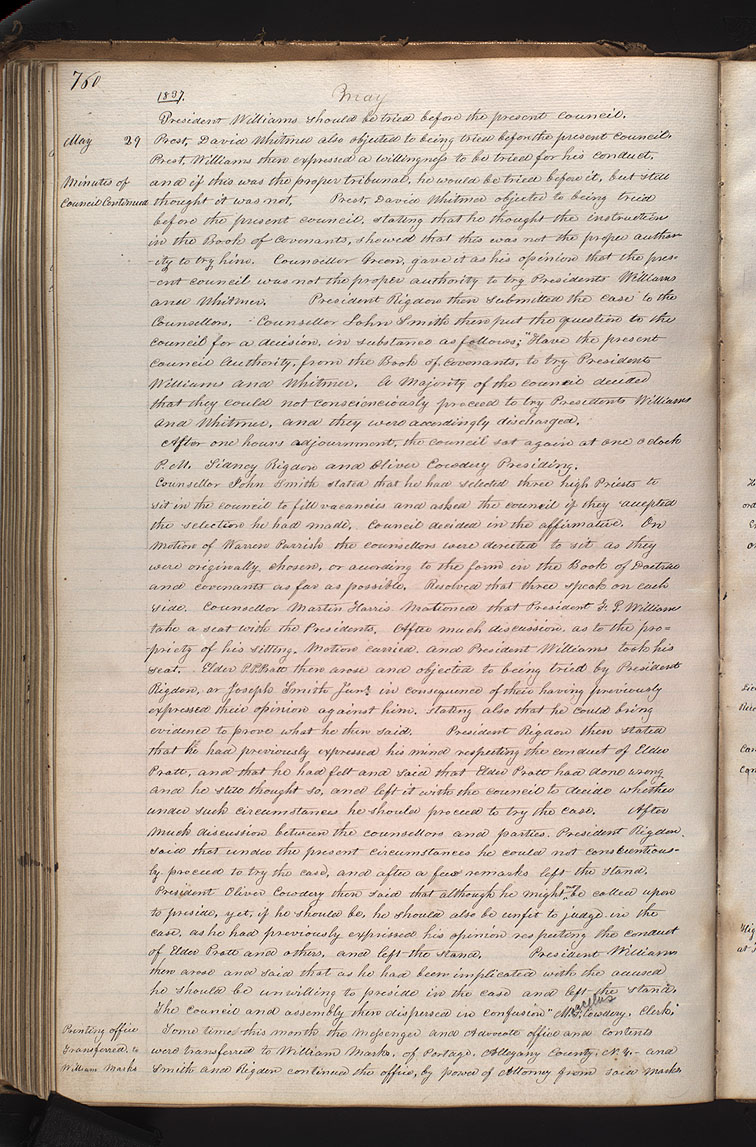 760
1837.
May
President Williams should be tried before the present council.
May 29
Prest. David Whitmer also objected to being tried before the present council.
Prest Williams then expressed a willingness to be tried for his conduct.
Minutes of
Council Continued
and if this was the proper tribunal, he would be tried before it, but still
thought it was not. Prest, David Whitmer objected to being tried
before the present council, stating that he thought the instruction
in the Book of Covenants, showed that this was not the proper author-
-ity to try him. Councellor Green, gave it as his opinion that the pres-
-ent council was not the proper authority to try Presidents Williams
and Whitmer. President Rigdon then submitted the case to the
Councellors. Councellor John Smith then put the question to the
council for a decision, in substance as follows; "Have the present
council Authority, from the Book of Covenants, to try Presidents
Williams and Whitmer. A Majority of the council decided
that they could not conscienciously proceed to try Presidents Williams
and Whitmer, and they were accordingly discharged.
After one hours adjournment, the council sat again at one o clock
P.M. Sidney Rigdon and Oliver Cowdery Presiding.
Councellor John Smith stated that he had selected three high Priests to
sit in the council to fill vacancies and asked the council if they accepted
the selection he had made, Council decided in the affirmative. On
motion of Warren Parrish the councellors were directed to sit as they
were originally chosen, or according to the form in the Book of Doctrine
and covenants as far as possible. Resolved that three speak on each
side. Councellor Martin Harris Motioned that President F. G. Williams
take a seat with the Presidents. After much discussion, as to the pro=
priety of his sitting. Motion carried, and President Williams took his
seat. Elder P. P. Pratt then arose and objected to being tried by President
Rigdon, or Joseph Smith Junr. in consequence of their having previously
expressed their opinion against him. stating also that he could bring
evidence to prove what he then said. President Rigdon then stated
that he had previously expressed his mind respecting the conduct of Elder
Pratt, and that he had felt and said that Elder Pratt had done wrong
and he still thought so, and left it with the council to decide whether
under such circumstances he should proceed to try the case. After
much discussion between the counsellors and parties. President Rigdon.
said that under the present circumstances he could not conscientious-
ly proceed to try the case, and after a few remarks left the stand.
President Oliver Cowdery then said that although he might not be called upon
to preside, yet, if he should be, he should also be unfit to judge in the
case, as he had previously expressed his opinion respecting the conduct
of Elder Pratt and others, and left the stand. President Williams
then arose and said that as he had been implicated with the accused
he should be unwilling to preside in the case and left the stand.
The council and assembly then dispersed in confusion" Marcellus Cowdery, Clerk,"
Printing office
Transferred to
William Marks
Some time this month the Messenger and Advocate office and contents
were transferred to William Marks, of Portage, Allegany County, N. Y,- and
Smith and Rigdon continued the office, by power of Attorney from said Marks